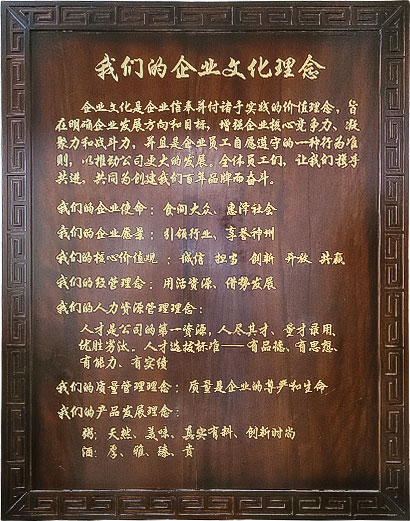 我们的企业文化理念
企业文化是企业信奉并付诸于实践的价值理念，旨
在明确企业发展方向和目标，增强企业核心竞争力、凝
聚力和战斗力，并且是企业员工自愿遵守的一种行为准
则，以推动公司更大的发展。全体员工们，让我们携手
共进，共同为创建我们百年品牌而奋斗。
我们的企业使命：食间大众、惠泽社会
我们的企业愿景：引领行业、享誉神州
我们的核心价值观：诚信 担当 创新 开放 共赢
我们的经营理念：用活资源、借势发展
我们的人力资源管理理念：
人才是公司的第一资源，人尽其才、量才录用、
优胜劣汰。人才选拔标准——有品德、有思想、
有能力、有实绩
我们的质量管理理念：质量是企业的尊严和生命
我们的产品发展理念：
粥：天然、美味、真实有料、创新时尚
酒：厚、雅、臻、贵